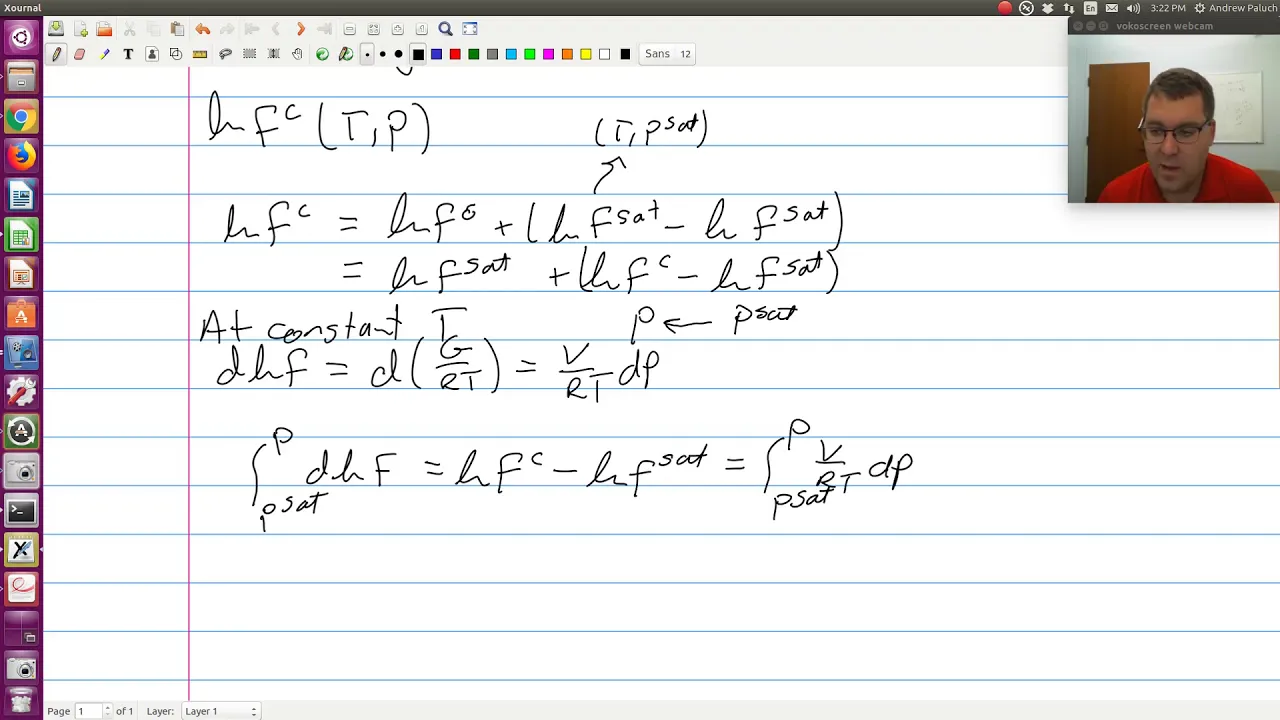 Xournal
En
3:22 PM
Andrew Paluch
vokoscreen webcam
T
Sans 12
ln f^c (T, P)
(T, P^sat)
ln f^c = ln f^o + (ln f^sat - ln f^sat)
= ln f^sat + (ln f^c - ln f^sat)
At constant T
P ← P^sat
d ln f = d(G/RT) = V/RT dP
∫_{P^sat}^{P} d ln f = ln f^c - ln f^sat = ∫_{P^sat}^{P} V/RT dP
Page 1 of 1 Layer: Layer 1